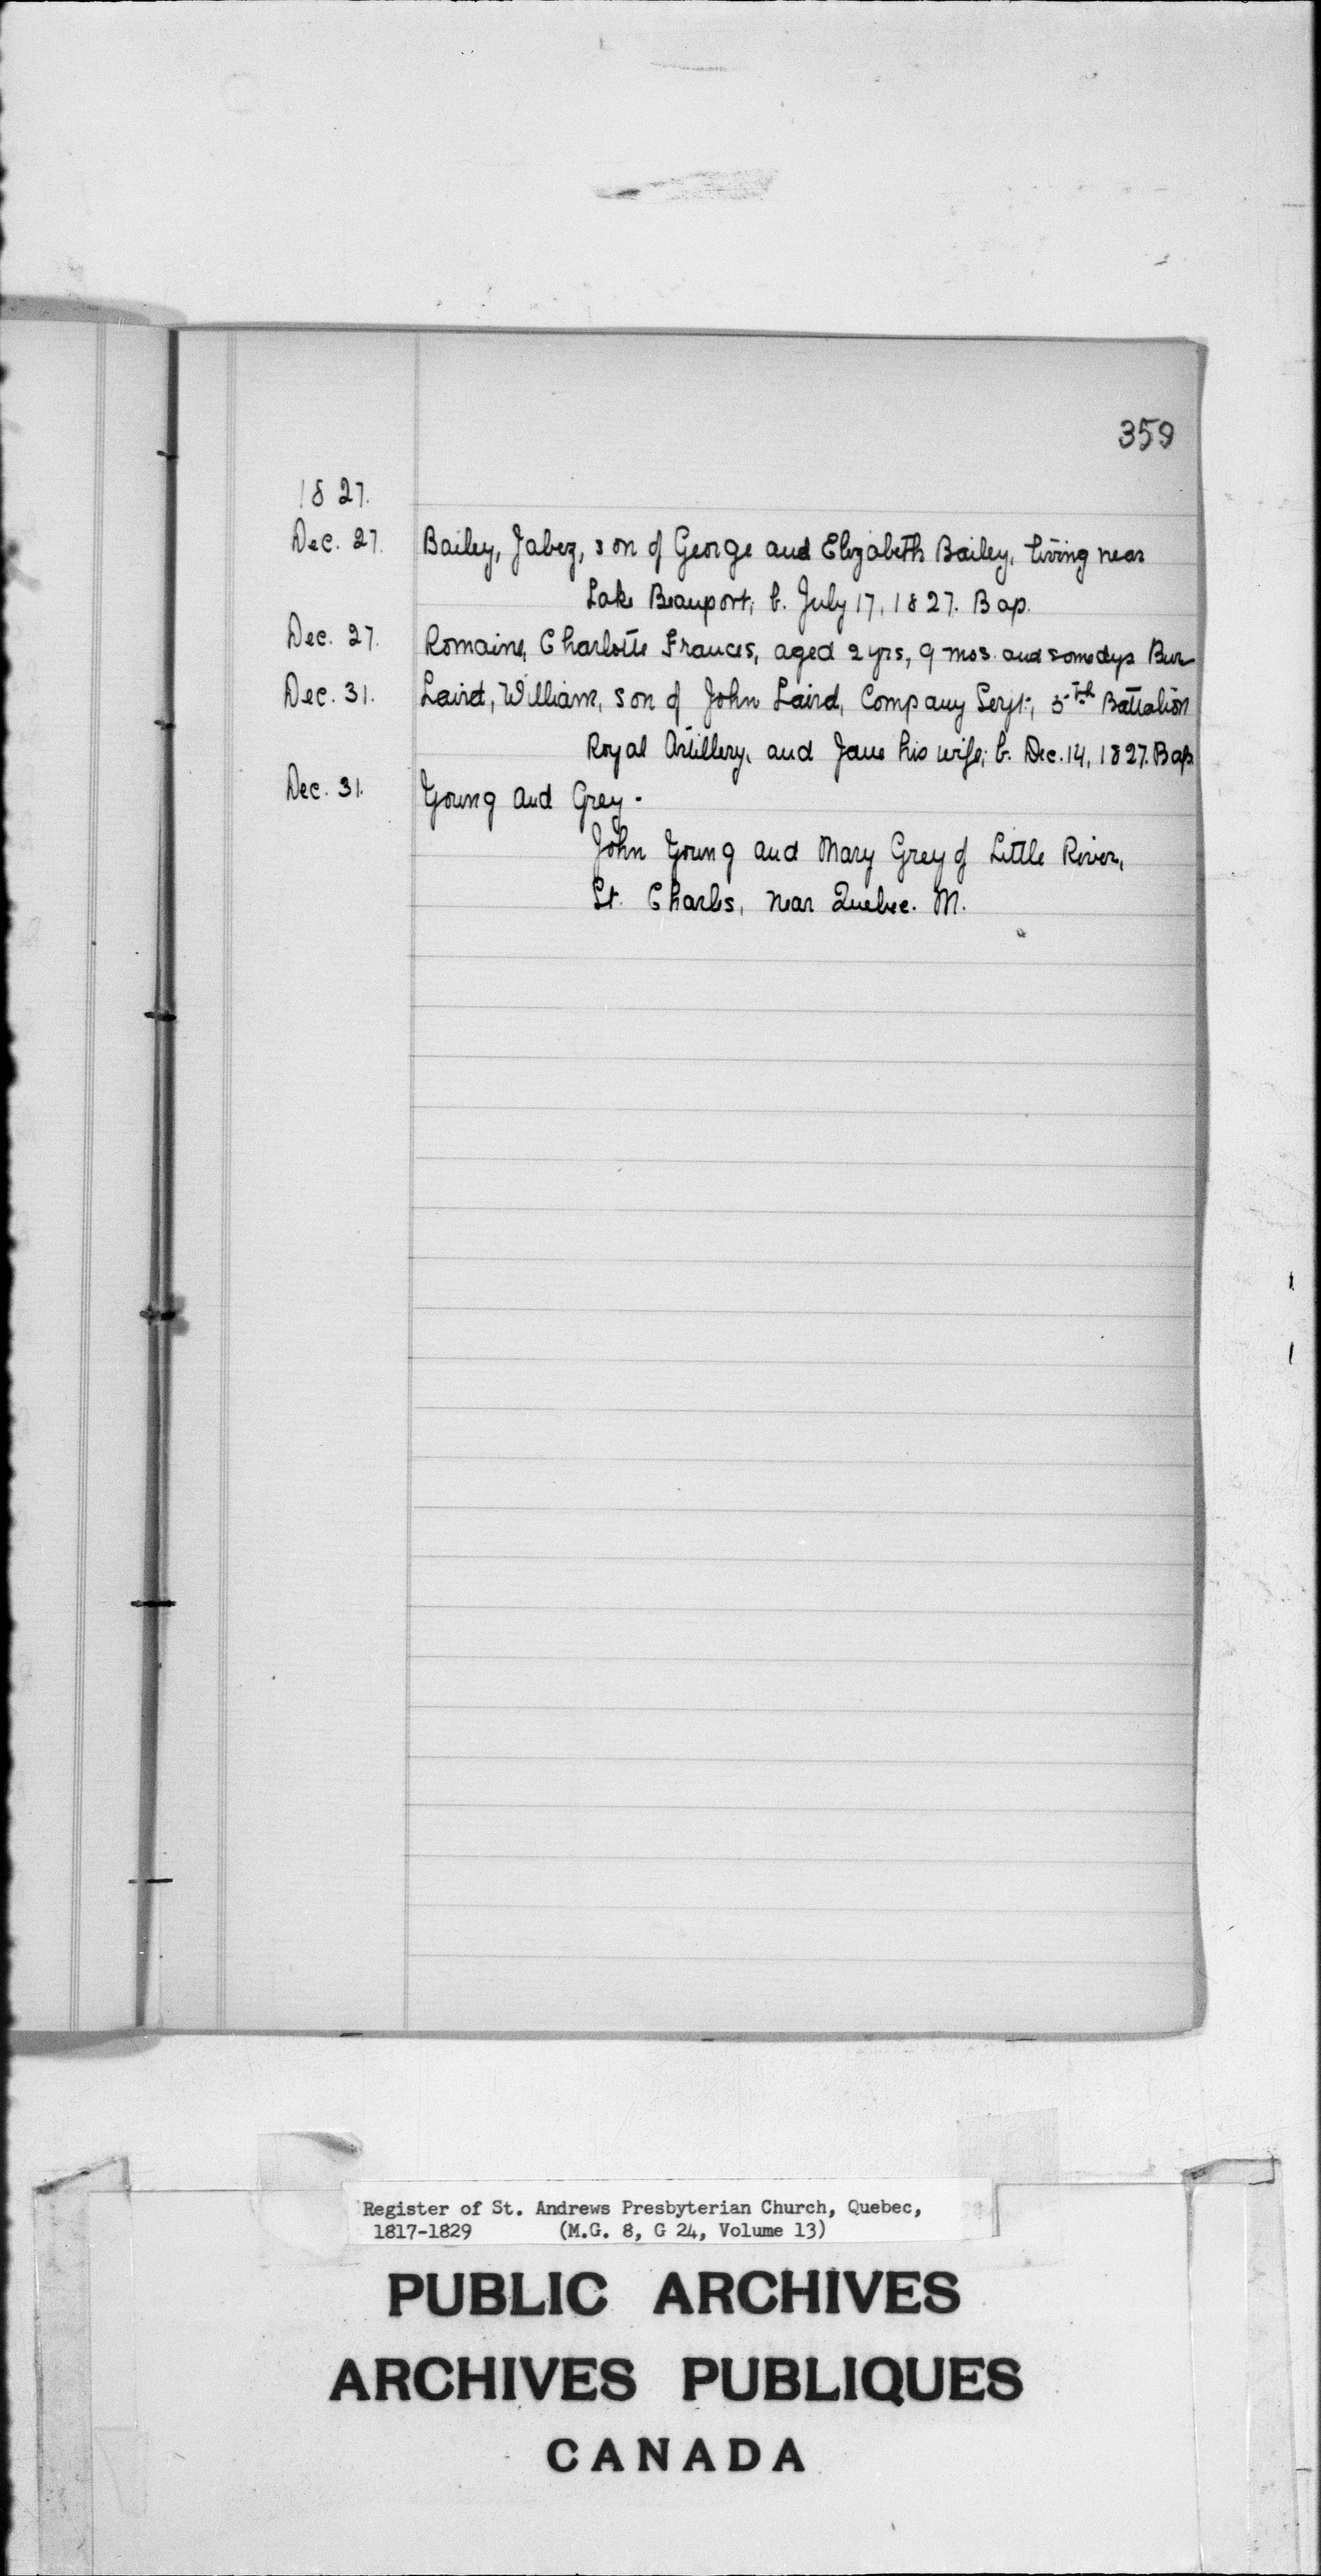 359
1827.
Dec. 27. Bailey, Jabez, son of George and Elizabeth Bailey, living near
Lake Beauport; b. July 17, 1827. Bap.
Dec. 27. Romaine, Charlotte Frances, aged 2 yrs, 9 mos. and some dys Bur
Dec. 31. Laird, William, son of John Laird, Company Sergt., 5th Battalion
Royal Artillery, and Jane his wife; b. Dec. 14, 1827. Bap.
Dec. 31. Young and Grey.
John Young and Mary Grey of Little River,
St. Charles, near Quebec. M.
Register of St. Andrews Presbyterian Church, Quebec,
1817-1829 (M.G. 8, G 24, Volume 13)
PUBLIC ARCHIVES
ARCHIVES PUBLIQUES
CANADA